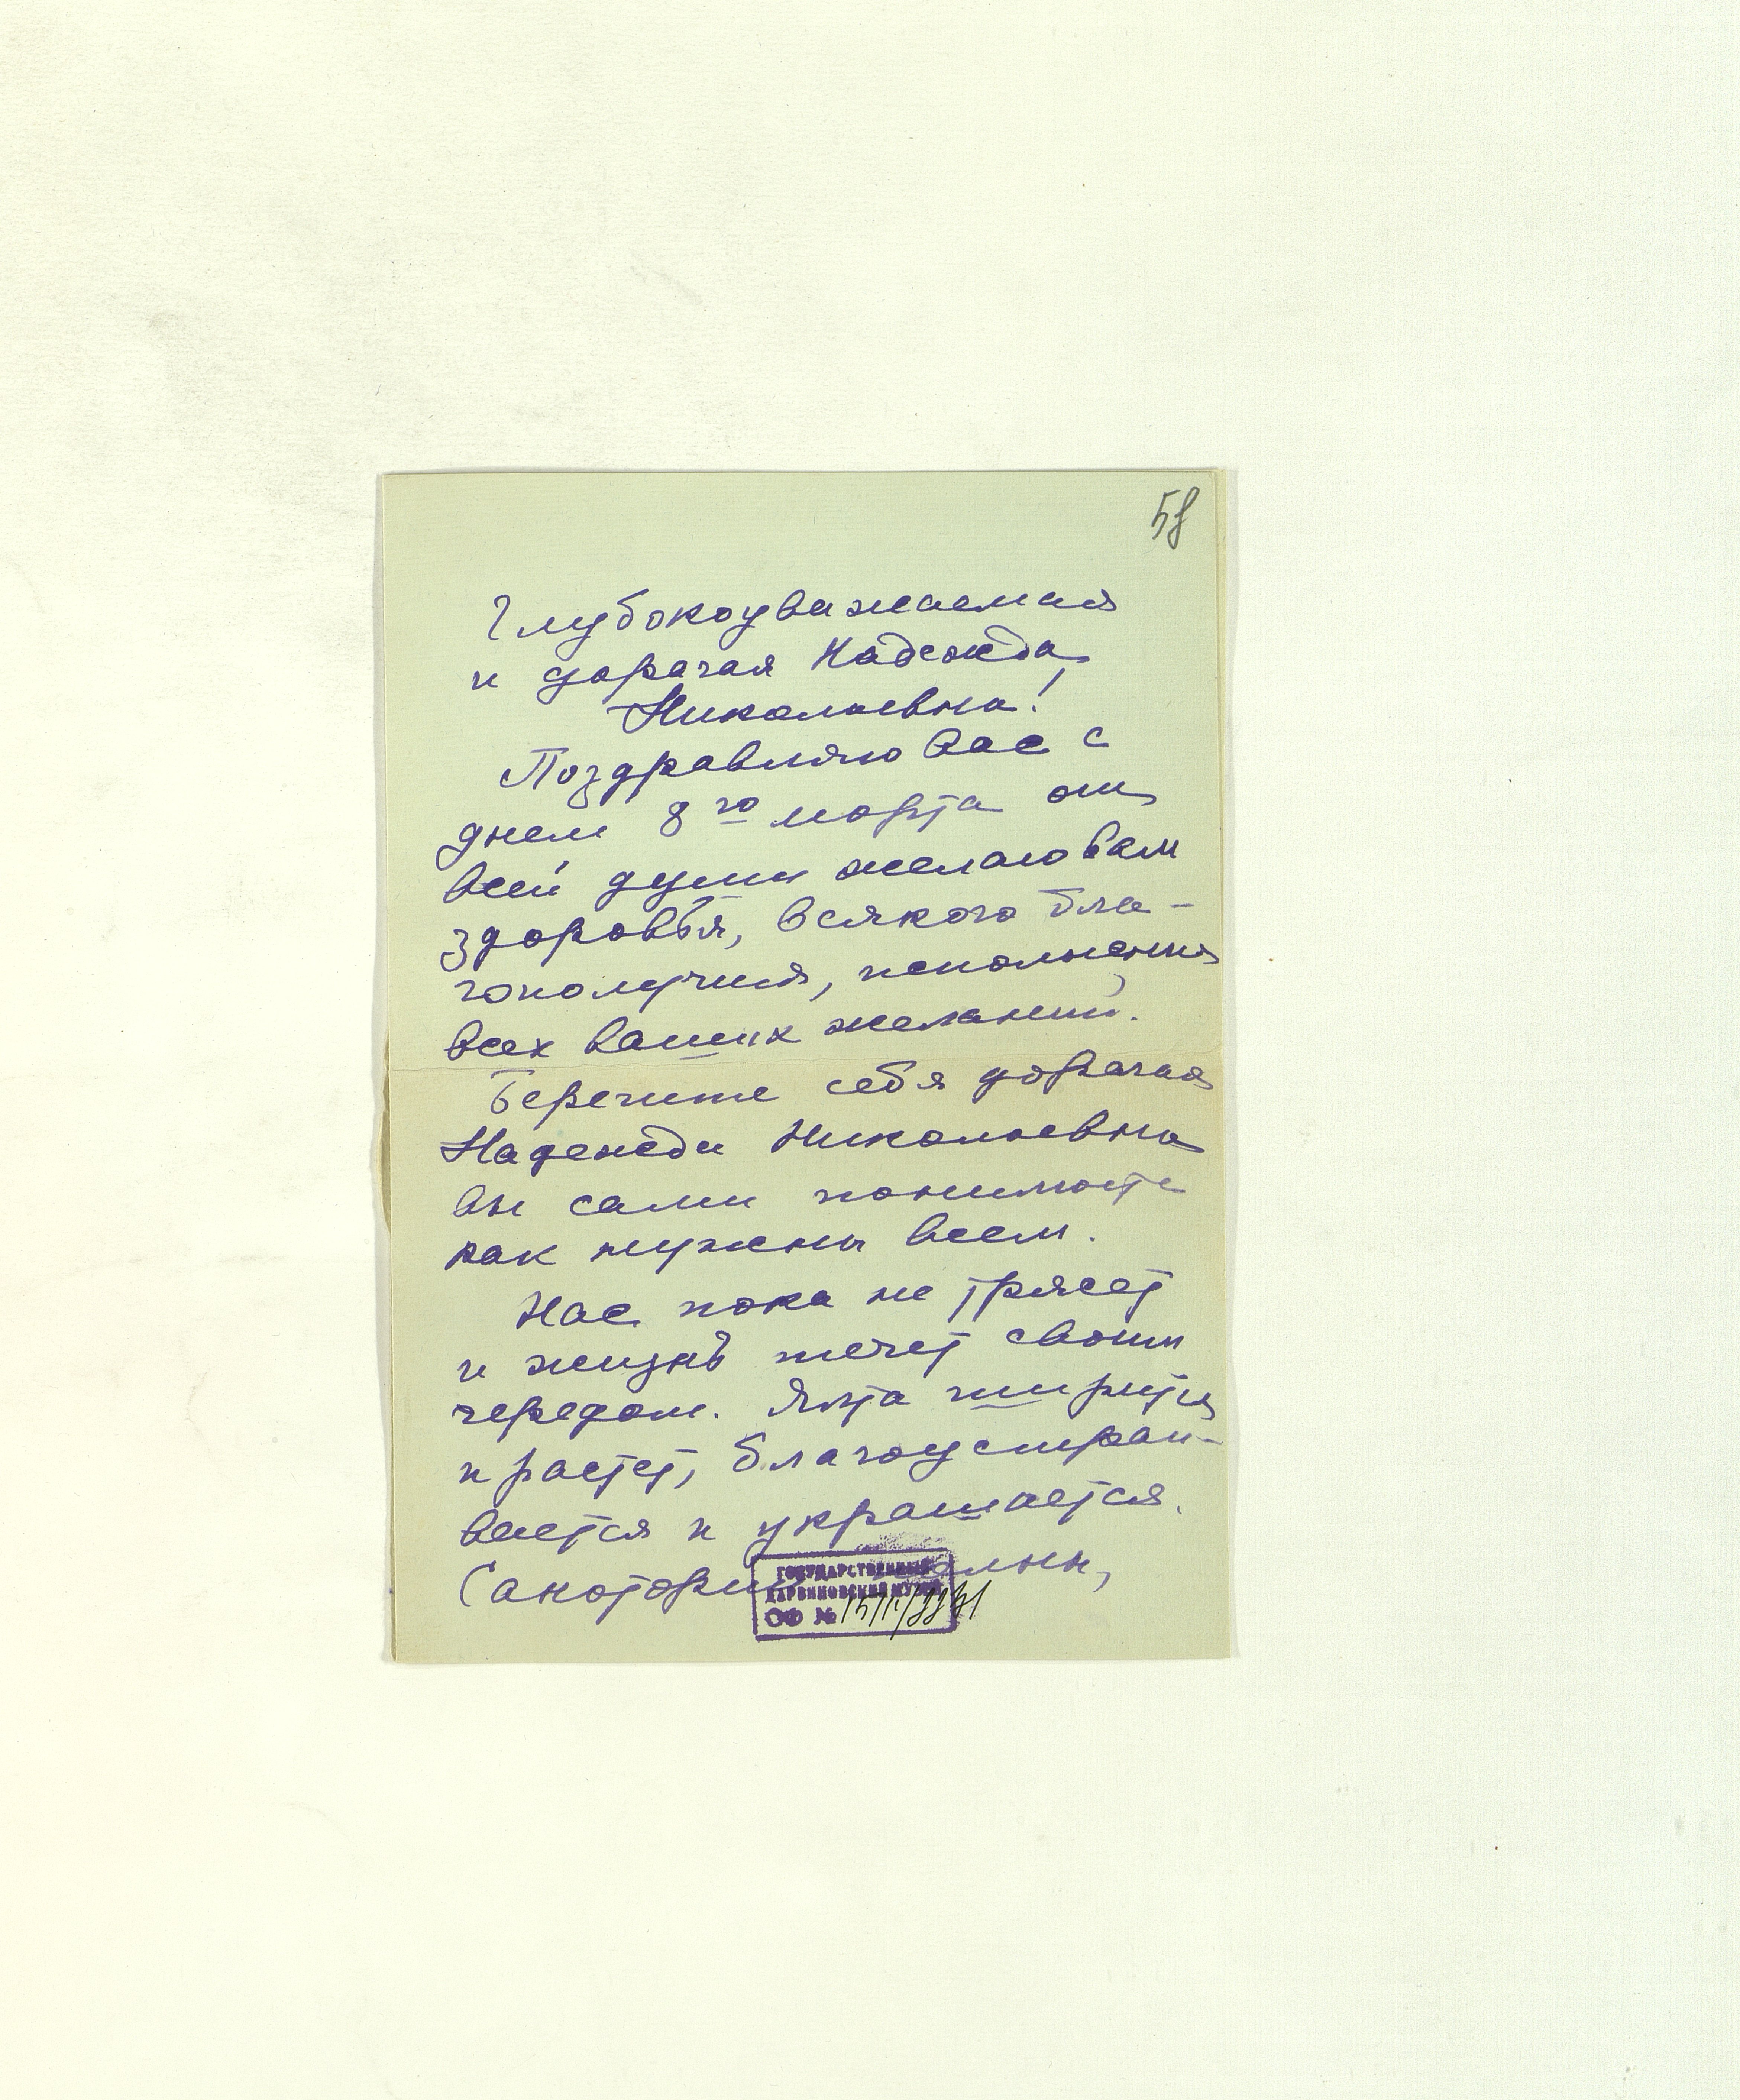 58
Глубокоуважаемая
и дорогая Надежда
Николаевна!
Поздравляю Вас с
днем 8го марта от
всей души желаю вам
здоровья, всякого бла-
гополучия, исполнения
всех ваших желаний.
Берегите себя дорогая
Надежда Николаевна
вы сами понимаете
как нужны всем.
Нас пока не трясет
и жизнь течет своим
чередом. Ялта ширится
и растет, благоустраи-
вается и украшается.
Санатории полны,
ГОСУДАРСТВЕННЫЙ
ДАРВИНОВСКИЙ МУЗЕЙ
ОФ №